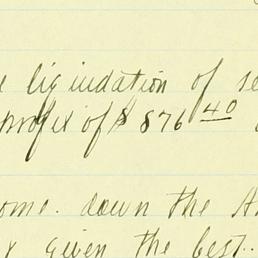 liquidation of se
profit of $ 876 40
ome. down the A
given the best..